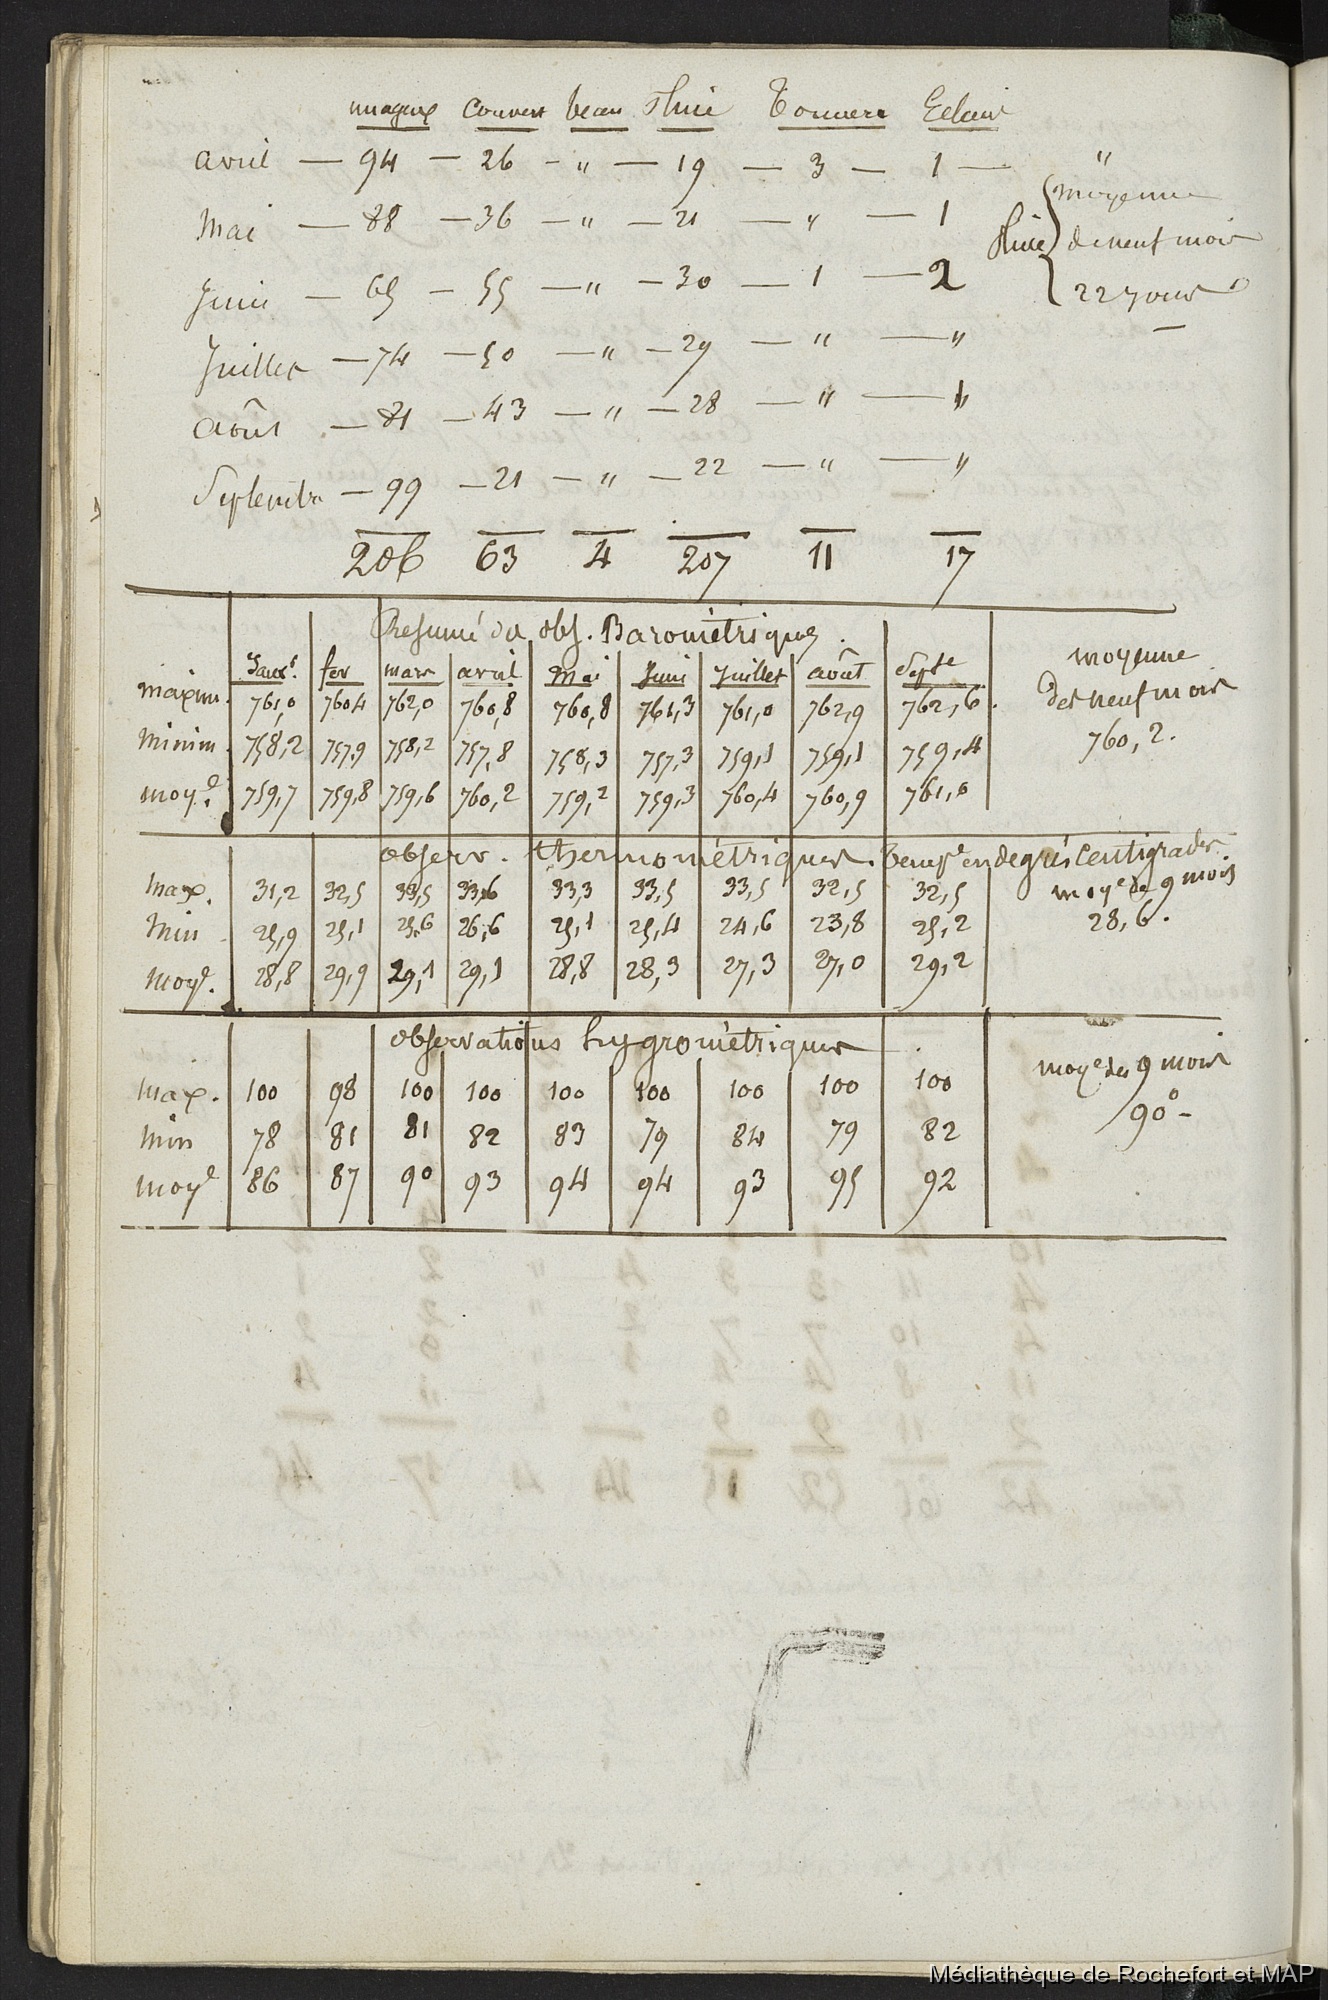 nuageux couvert beau Pluie Tonnere Eclair
avril — 94 — 26 - " — 19 — 3 — 1 — "
Mai — 88 — 36 — " — 21 — " — 1
Pluie { moyenne de neuf mois 22 jours
Juin — 65 — 55 — " — 30 — 1 — 2
Juillet — 74 — 50 — " — 29 — " — "
Août — 81 — 43 — " — 28 — " — "
Septembre — 99 — 21 — " — 22 — " — "
206 63 4 207 11 17
Resumé des obs. Barométriques.
Janvr. fev mars avril Mai Juin Juillet août Septe moyenne des neuf mois
maxim. 761,0 760,4 762,0 760,8 760,8 761,3 761,0 762,9 762,6. 760,2.
Minim. 758,2 757,9 758,2 757,8 758,3 757,3 759,1 759,1 759,4
moye. 759,7 759,8 759,6 760,2 759,2 759,3 760,4 760,9 761,0
observ. thermométriques. Tempe en degrés Centigrades.
Max. 31,2 32,5 33,5 33,6 33,3 33,5 33,5 32,5 32,5 moye de 9 mois
Min 25,9 25,1 25,6 26,6 25,1 25,4 24,6 23,8 25,2 28,6.
Moye. 28,8 29,9 29,1 29,1 28,8 28,3 27,3 27,0 29,2
observations hygrométriques
Max. 100 98 100 100 100 100 100 100 100 moye des 9 mois
Min 78 81 81 82 83 79 84 79 82 90°-
moye 86 87 90 93 94 94 93 95 92
Médiathèque de Rochefort et MAP